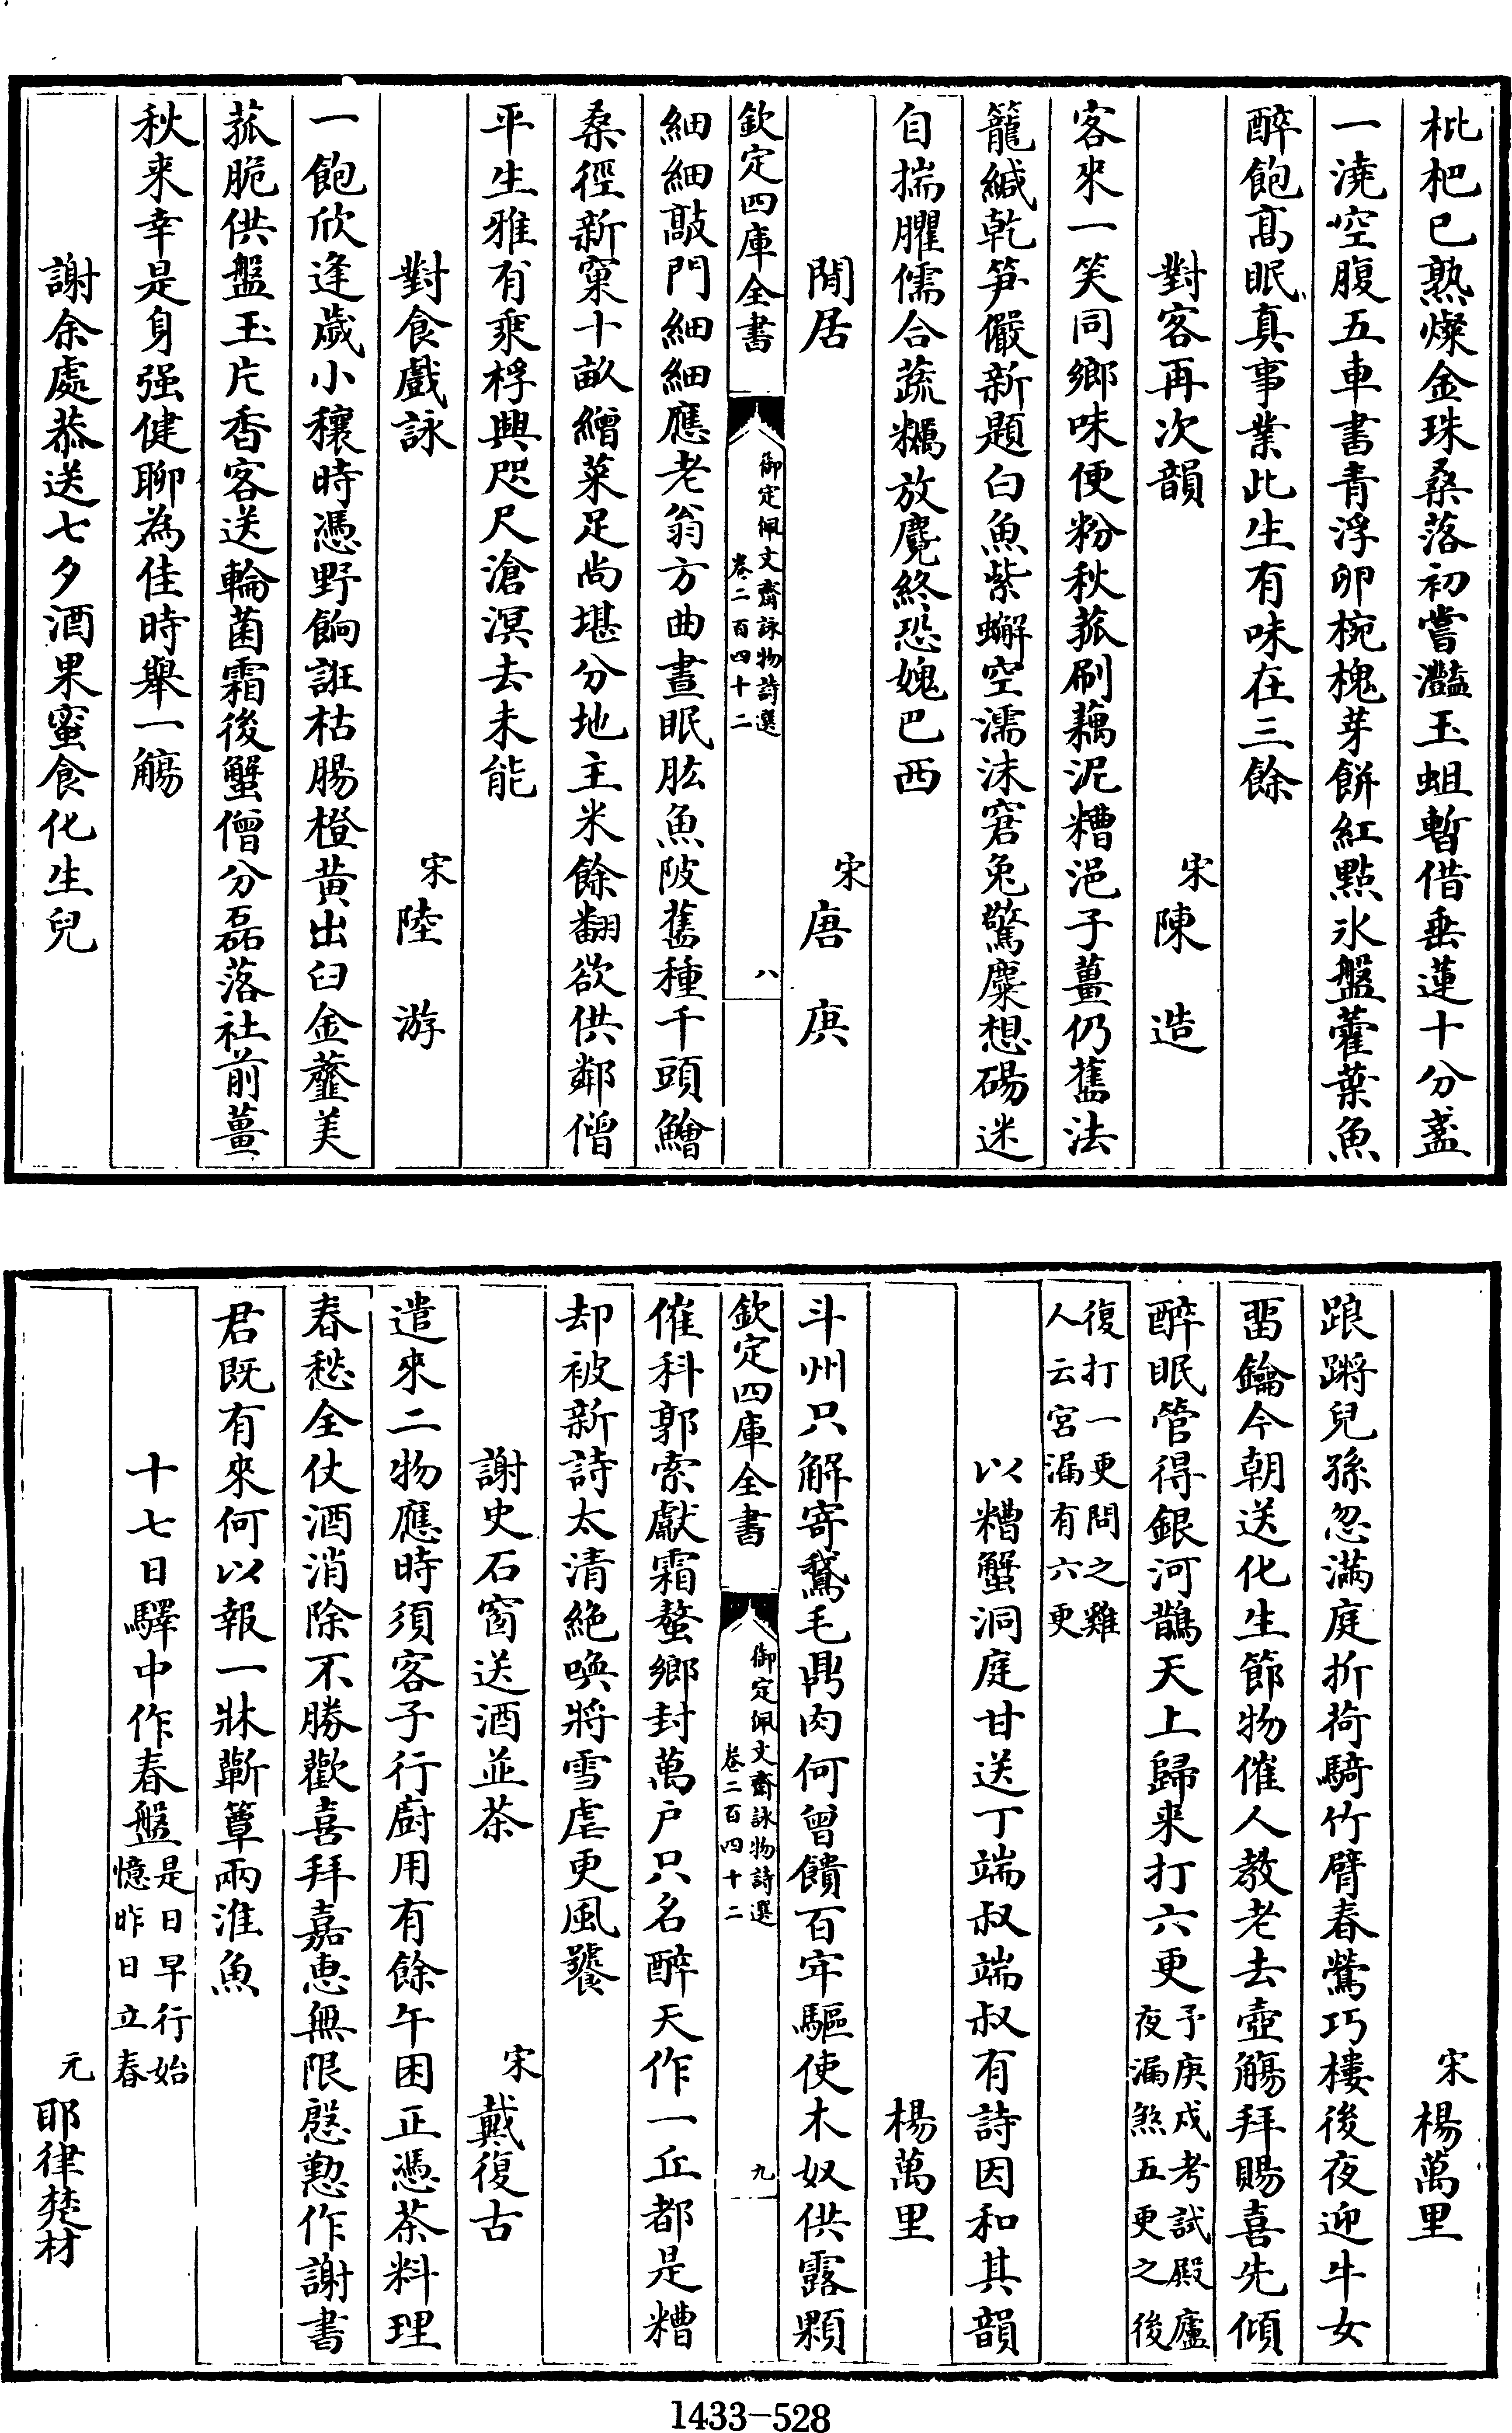 枇杷已熟燦金珠桑落初嘗灩玉蛆暫借垂蓮十分盞
一澆空腹五車書青浮卵椀槐芽餅紅點氷盤藿葉魚
醉飽髙眠真事業此生有味在三餘
對客再次韻
宋陳造
客來一笑同鄉味便粉秋菰刷藕泥糟浥子薑仍舊法
籠緘乾笋儼新題白魚紫蠏空濡沫窘兔驚麋想碭迷
自揣臞儒合蔬糲放麑終恐媿巴西
閒居
宋唐庚
欽定四庫全書
御定佩文齋詠物詩選
卷二百四十二
八
細細敲門細細應老翁方曲晝眠肱魚陂舊種千頭鱠
桑徑新窠十畝繒菜足尚堪分地主米餘翻欲供鄰僧
平生雅有乘桴興咫尺滄溟去未能
對食戲詠
宋陸游
一飽欣逢歲小穰時憑野餉誑枯腸橙黄出臼金虀美
菰脆供盤玉片香客送輪菌霜後蟹僧分磊落社前薑
秋来幸是身强健聊為佳時舉一觴
謝余處恭送七夕酒果蜜食化生兒
宋楊萬里
踉蹡兒孫忽滿庭折荷騎竹臂春鶯巧樓後夜迎牛女
畱鑰今朝送化生節物催人教老去壺觴拜賜喜先傾
醉眠管得銀河鵲天上歸来打六更
予庚戍考試殿廬
夜漏煞五更之後
復打一更問之雞
人云宮漏有六更
以糟蟹洞庭甘送丁端叔端叔有詩因和其韻
楊萬里
斗州只解寄鵞毛鼎肉何曾饋百牢驅使木奴供露顆
欽定四庫全書
御定佩文齋詠物詩選
卷二百四十二
九
催科郭索獻霜螯鄉封萬户只名醉天作一丘都是糟
却被新詩太清絶喚將雪虐更風饕
謝史石窗送酒並茶
宋戴復古
遣來二物應時須客子行廚用有餘午困正憑茶料理
春愁全仗酒消除不勝歡喜拜嘉惠無限慇懃作謝書
君既有來何以報一牀蘄簟兩淮魚
十七日驛中作春盤
是日早行始
憶昨日立春
元耶律楚材
1433-528